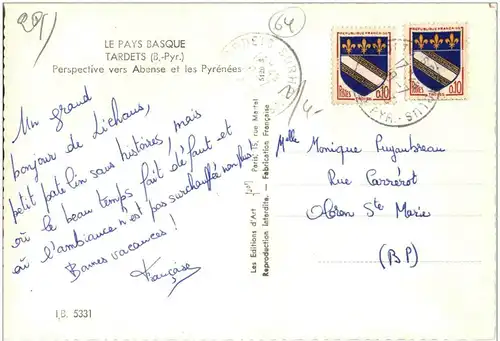 64
LE PAYS BASQUE
TARDETS (B.-Pyr.)
Perspective vers Abense et les Pyrénées
Un grand
bonjour de Lichans,
petit patelin sans histoires, mais
où le beau temps fait défaut et
où l'ambiance n'est pas surchauffée non plus !
Bonnes vacances !
Française
I.B. 5331
Les Editions d'Art
Paris, 15, rue Martel
Reproduction Interdite. - Fabrication Française
REPUBLIQUE FRANCAISE
TROYES
0,10
REPUBLIQUE FRANCAISE
TROYES
0,10
Melle Monique Puyaubreau
Rue Carrérot
Oloron Ste Marie
(BP)